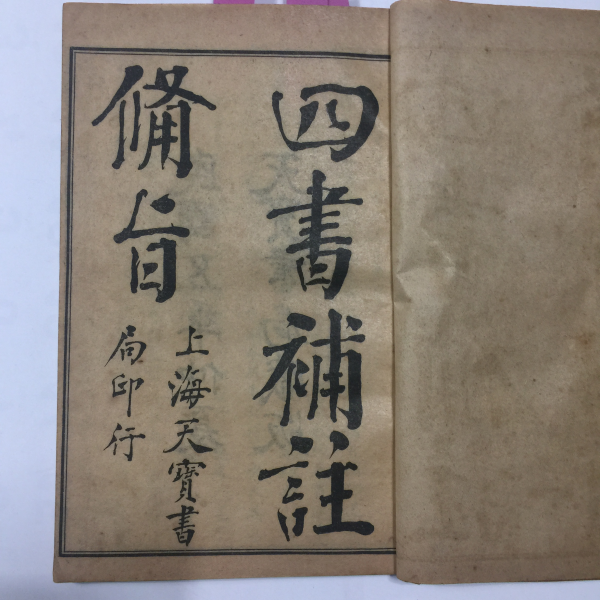 四書補註
備旨
上海天寶書
局印行